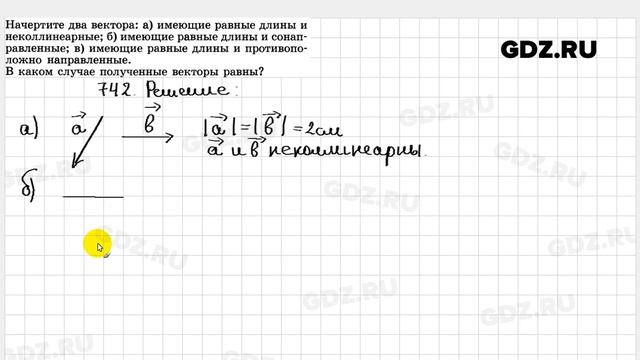 Начертите два вектора: а) имеющие равные длины и
неколлинеарные; б) имеющие равные длины и сонап-
равленные; в) имеющие равные длины и противопо-
ложно направленные.
В каком случае полученные векторы равны?
GDZ.RU
742. Решение:
а) a b |a| = |b| = 2см
a и b неколлинеарны.
б)
GDZ.RU
GDZ.RU
GDZ.RU
GDZ.RU
GDZ.RU
GDZ.RU
GDZ.RU
GDZ.RU